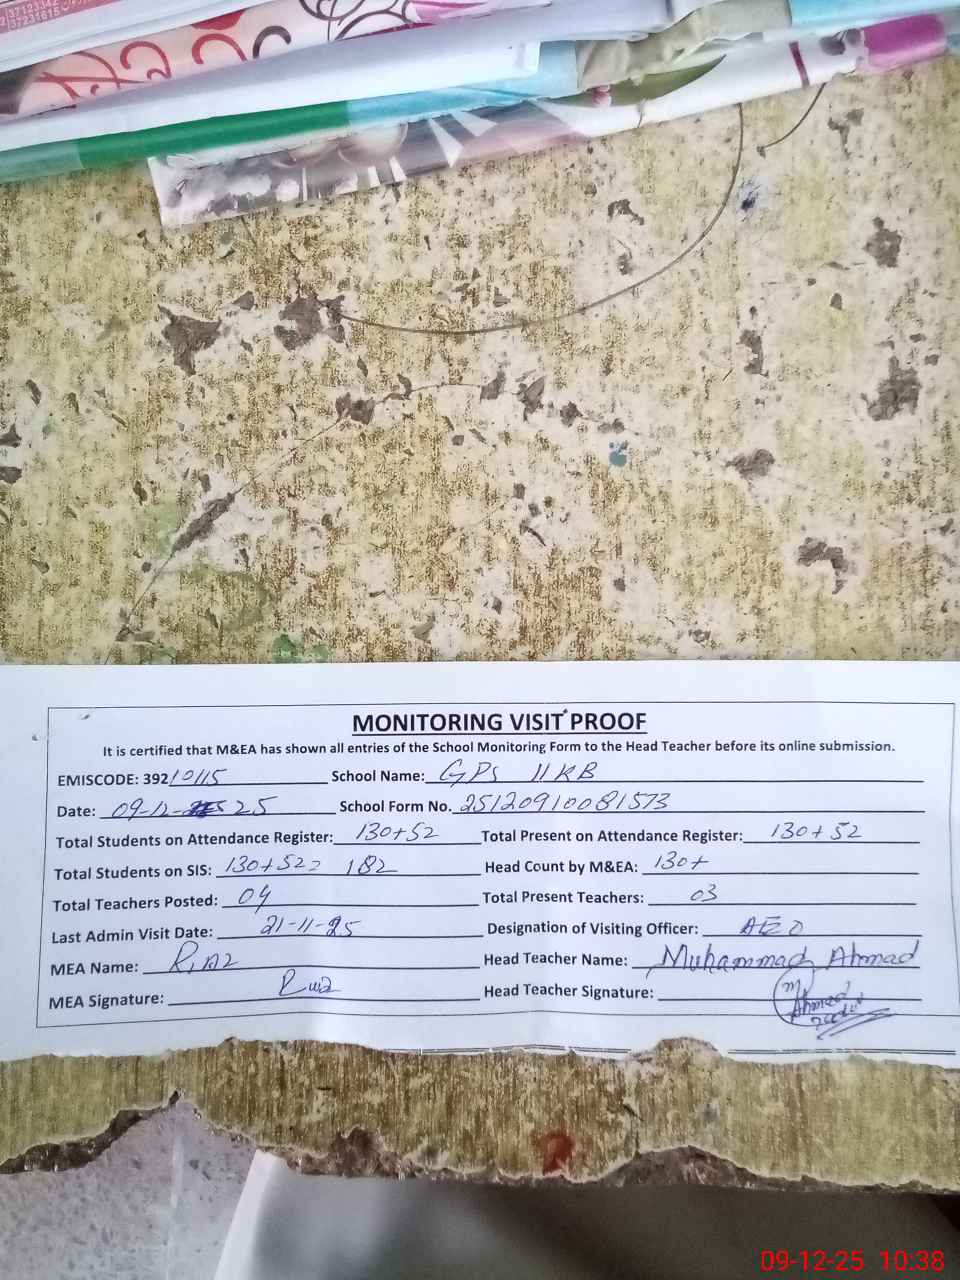 37123342
37231615
MONITORING VISIT PROOF
It is certified that M&EA has shown all entries of the School Monitoring Form to the Head Teacher before its online submission.
EMISCODE: 39210115 School Name: GPS 11KB
Date: 09-12-25 School Form No. 25120910081573
Total Students on Attendance Register: 130+52 Total Present on Attendance Register: 130+52
Total Students on SIS: 130+52= 182 Head Count by M&EA: 130+
Total Teachers Posted: 04 Total Present Teachers: 03
Last Admin Visit Date: 21-11-25 Designation of Visiting Officer: AEO
MEA Name: Riaz Head Teacher Name: Muhammad Ahmad
MEA Signature: Riaz Head Teacher Signature: M Ahmad
09-12-25 10:38